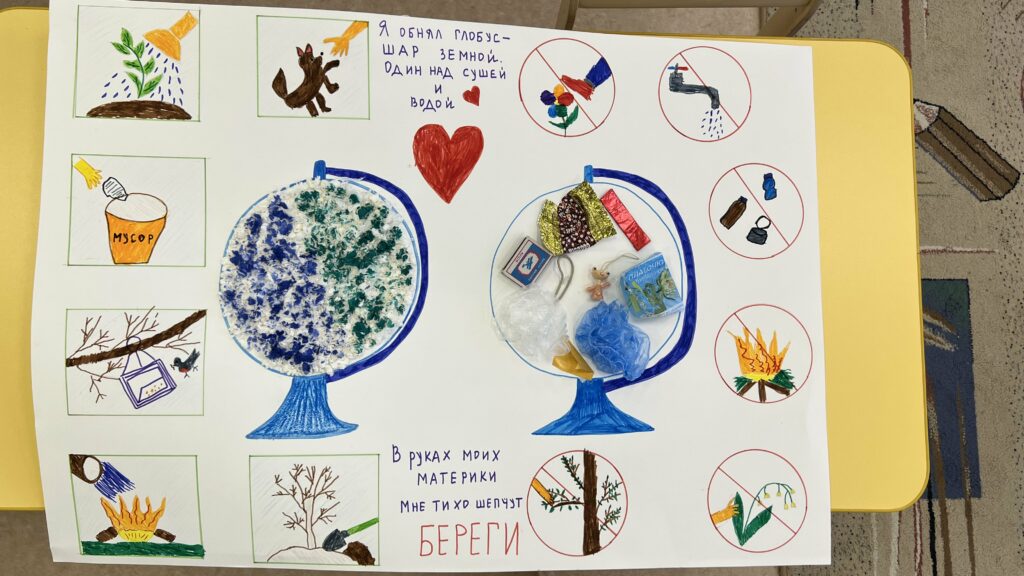 Я ОБНЯЛ ГЛОБУС-
ШАР ЗЕМНОЙ.
ОДИН НАД СУШЕЙ
И
ВОДОЙ
МУСОР
В РУКАХ МОИХ
МАТЕРИКИ
МНЕ ТИХО ШЕПЧУТ
БЕРЕГИ